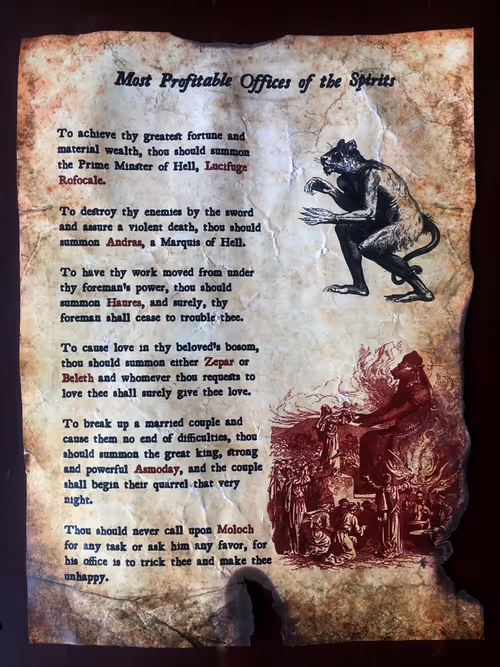 Most Profitable Offices of the Spirits
To achieve thy greatest fortune and
material wealth, thou should summon
the Prime Minster of Hell, Lucifuge
Rofocale.
To destroy thy enemies by the sword
and assure a violent death, thou should
summon Andras, a Marquis of Hell.
To have thy work moved from under
thy foreman's power, thou should
summon Haures, and surely, thy
foreman shall cease to trouble thee.
To cause love in thy beloved's bosom,
thou should summon either Zepar or
Beleth and whomever thou requests to
love thee shall surely give thee love.
To break up a married couple and
cause them no end of difficulties, thou
should summon the great king, strong
and powerful Asmoday, and the couple
shall begin their quarrel that very
night.
Thou should never call upon Moloch
for any task or ask him any favor, for
his office is to trick thee and make thee
unhappy.